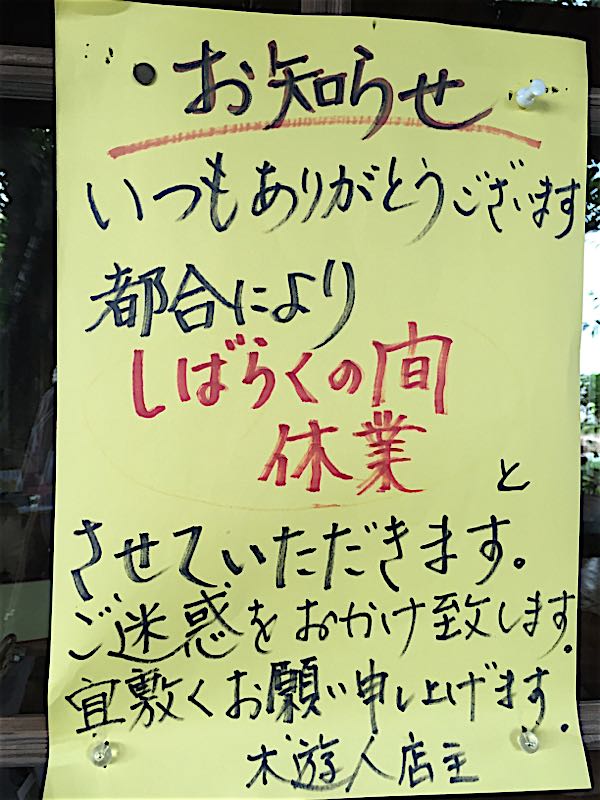 ・お知らせ
いつもありがとうございます
都合により
しばらくの間
休業と
させていただきます。
ご迷惑をおかけ致します。
宜敷くお願い申し上げます。
木遊人店主